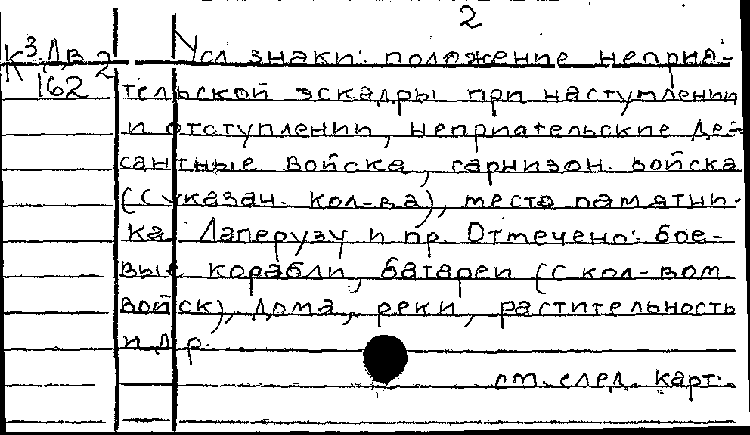 2
К³ Дв 2 Усл знаки: положение неприа-
К 162 тельской эскадры при наступлении
и отступлении, неприательские де-
сантные войска, гарнизон. войска
(с указан. кол-ва), место памятни-
ка Лаперузу и пр. Отмечено: бое-
вые корабли, батареи (с кол-вом
войск), дома, реки, растительность
и др.
см. след. карт.